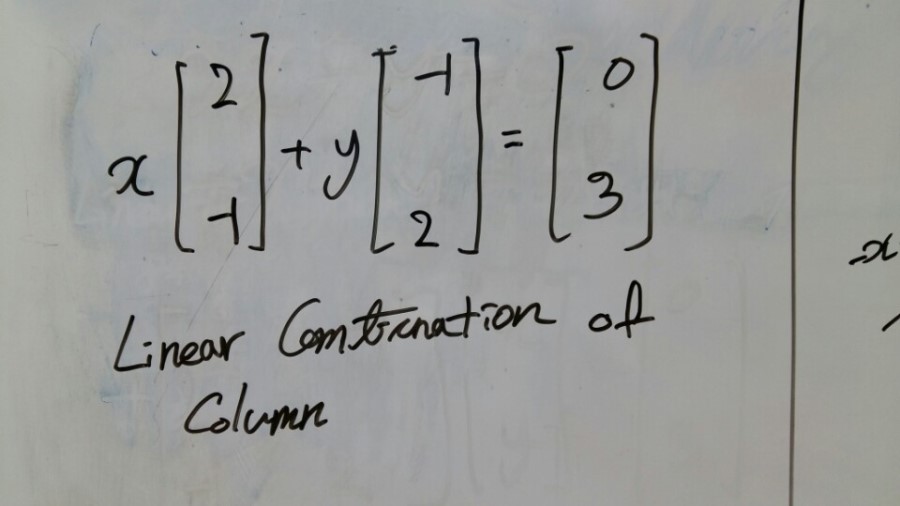 x [2 -1] + y [-1 2] = [0 3]
Linear Combination of
Column
-x